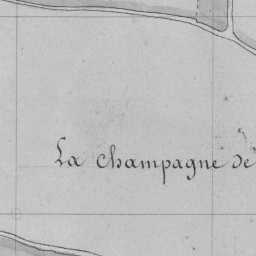 La champagne de